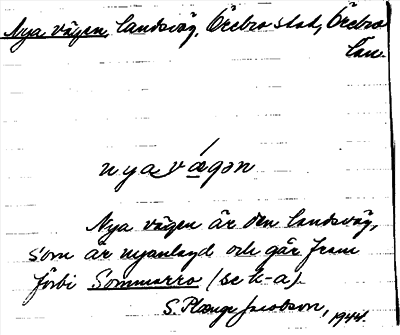 Nya vägen, landsväg, Örebro stad, Örebro
län.
nya vǽgən
Nya vägen är den landsväg,
som är nyanlagd och går fram
förbi Sommarro (se k-a).
S. Plænge Jacobson, 1944.